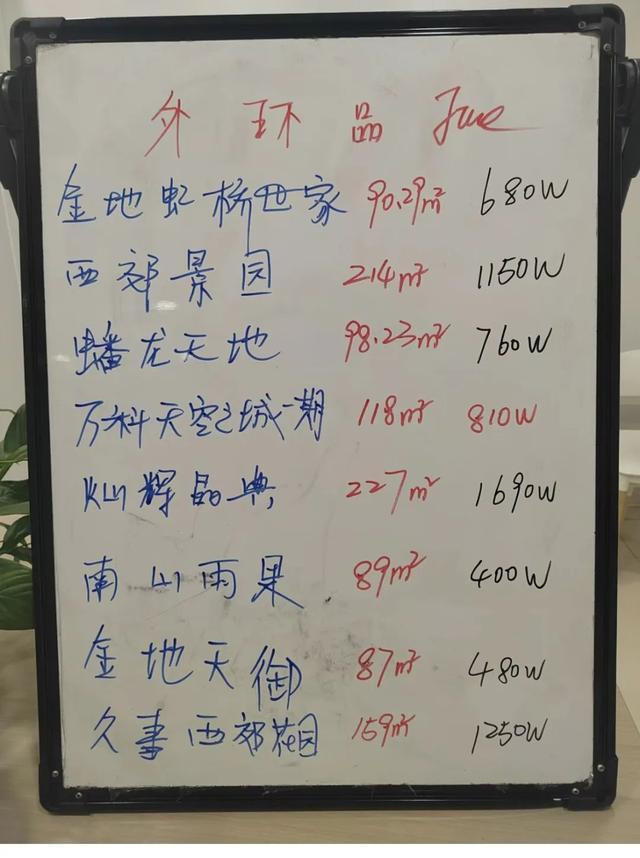 外环品 June
金地虹桥世家 90.29m² 680W
西郊景园 214m² 1150W
蟠龙天地 98.23m² 760W
万科天空之城一期 118m² 810W
仙辉晶典 227m² 1690W
南山雨果 89m² 400W
金地天御 87m² 480W
久事西郊花园 159m² 1250W